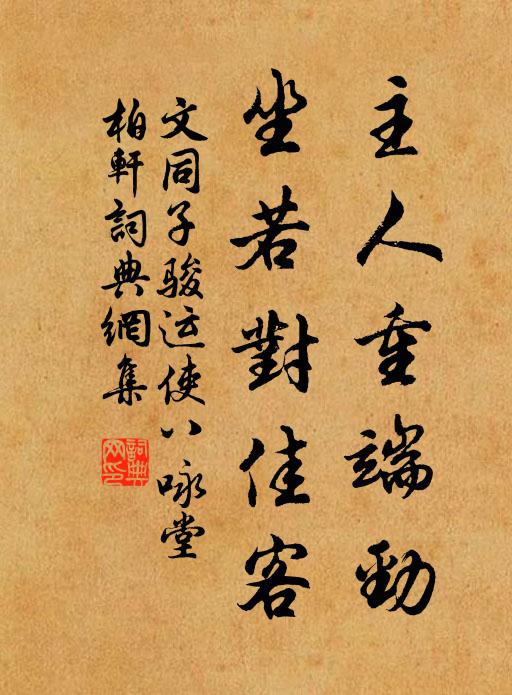 主人重端勁
坐若對佳客
文同子駿运使八咏堂
柏軒詞典網集
詞典网印